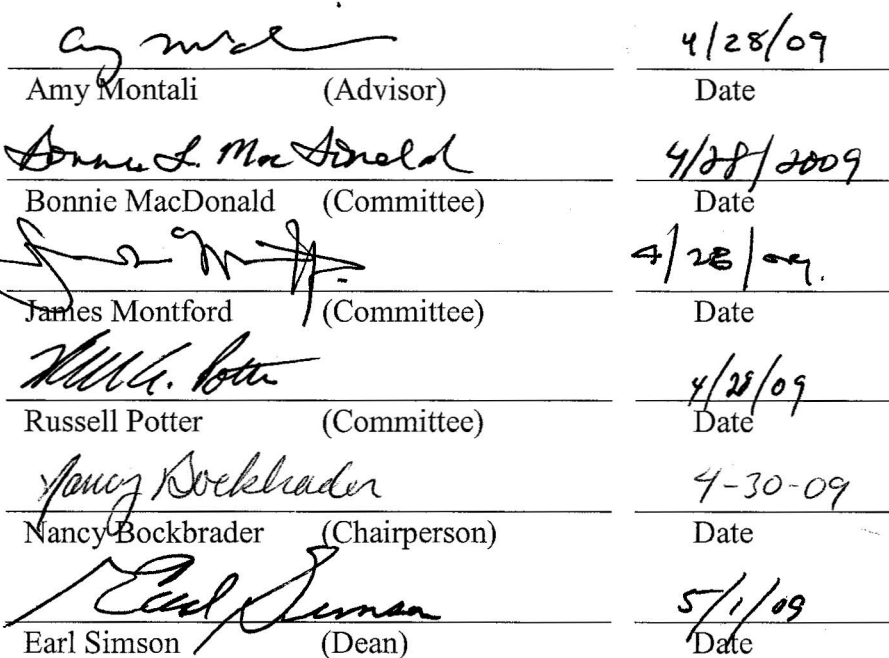 4/28/09
Amy Montali (Advisor) Date
Bonnie L. MacDonald 4/28/2009
Bonnie MacDonald (Committee) Date
4/28/09.
James Montford (Committee) Date
A. Potter 4/28/09
Russell Potter (Committee) Date
Nancy Bockbrader 4-30-09
Nancy Bockbrader (Chairperson) Date
Earl Simson 5/1/09
Earl Simson (Dean) Date